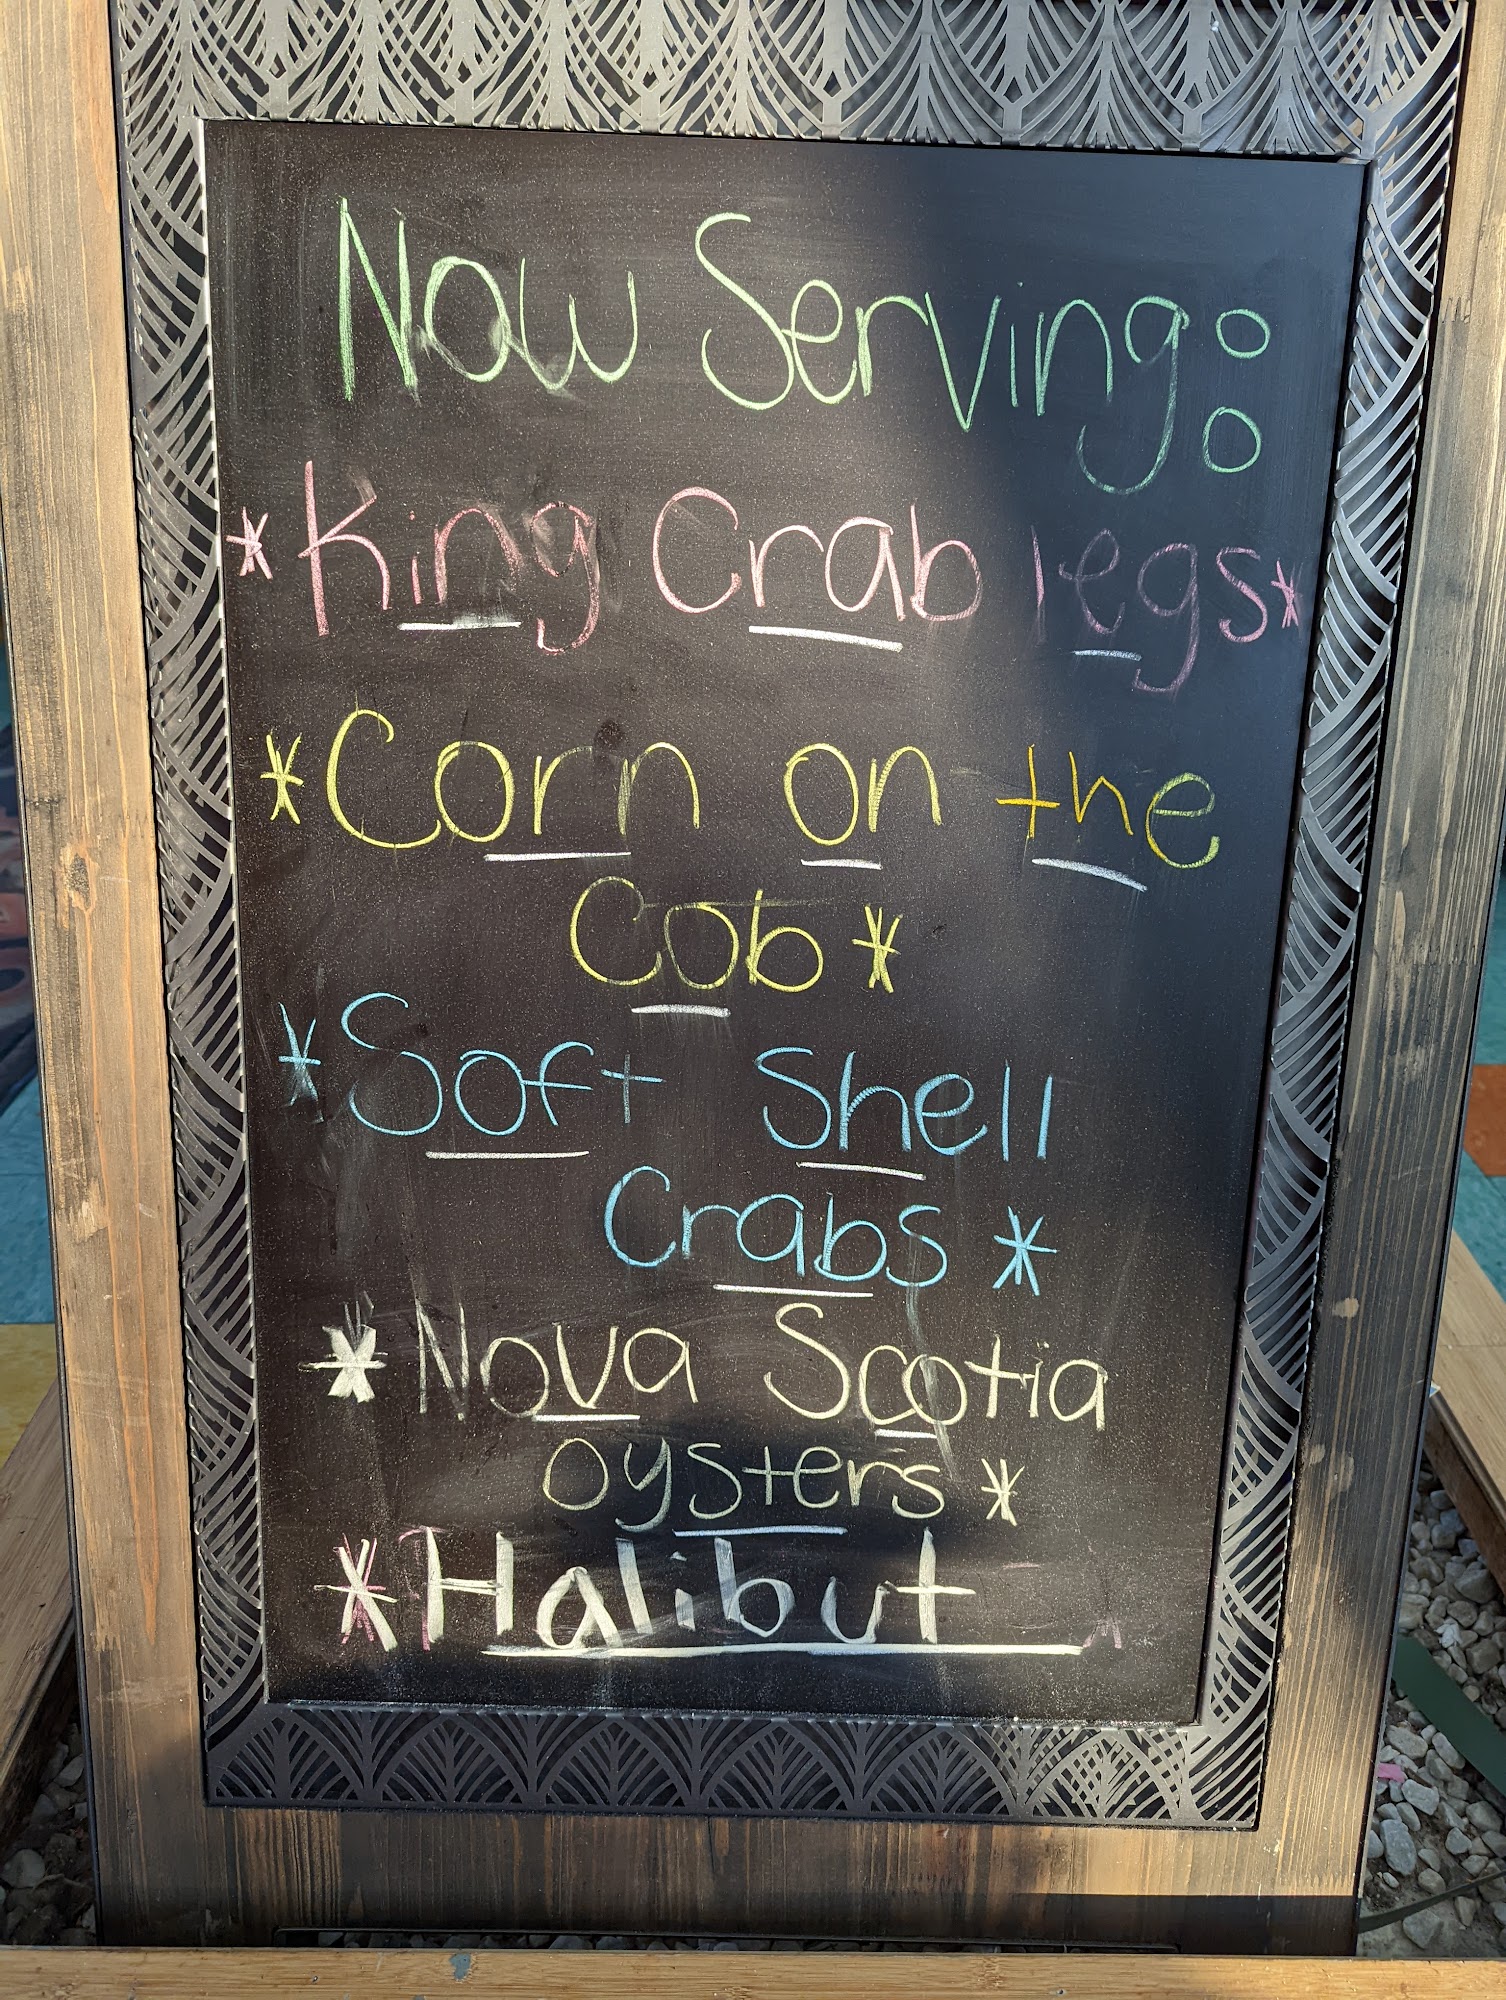 Now Serving:
*King Crab legs*
*Corn on the
Cob*
*Soft Shell
Crabs*
*Nova Scotia
oysters*
*Halibut